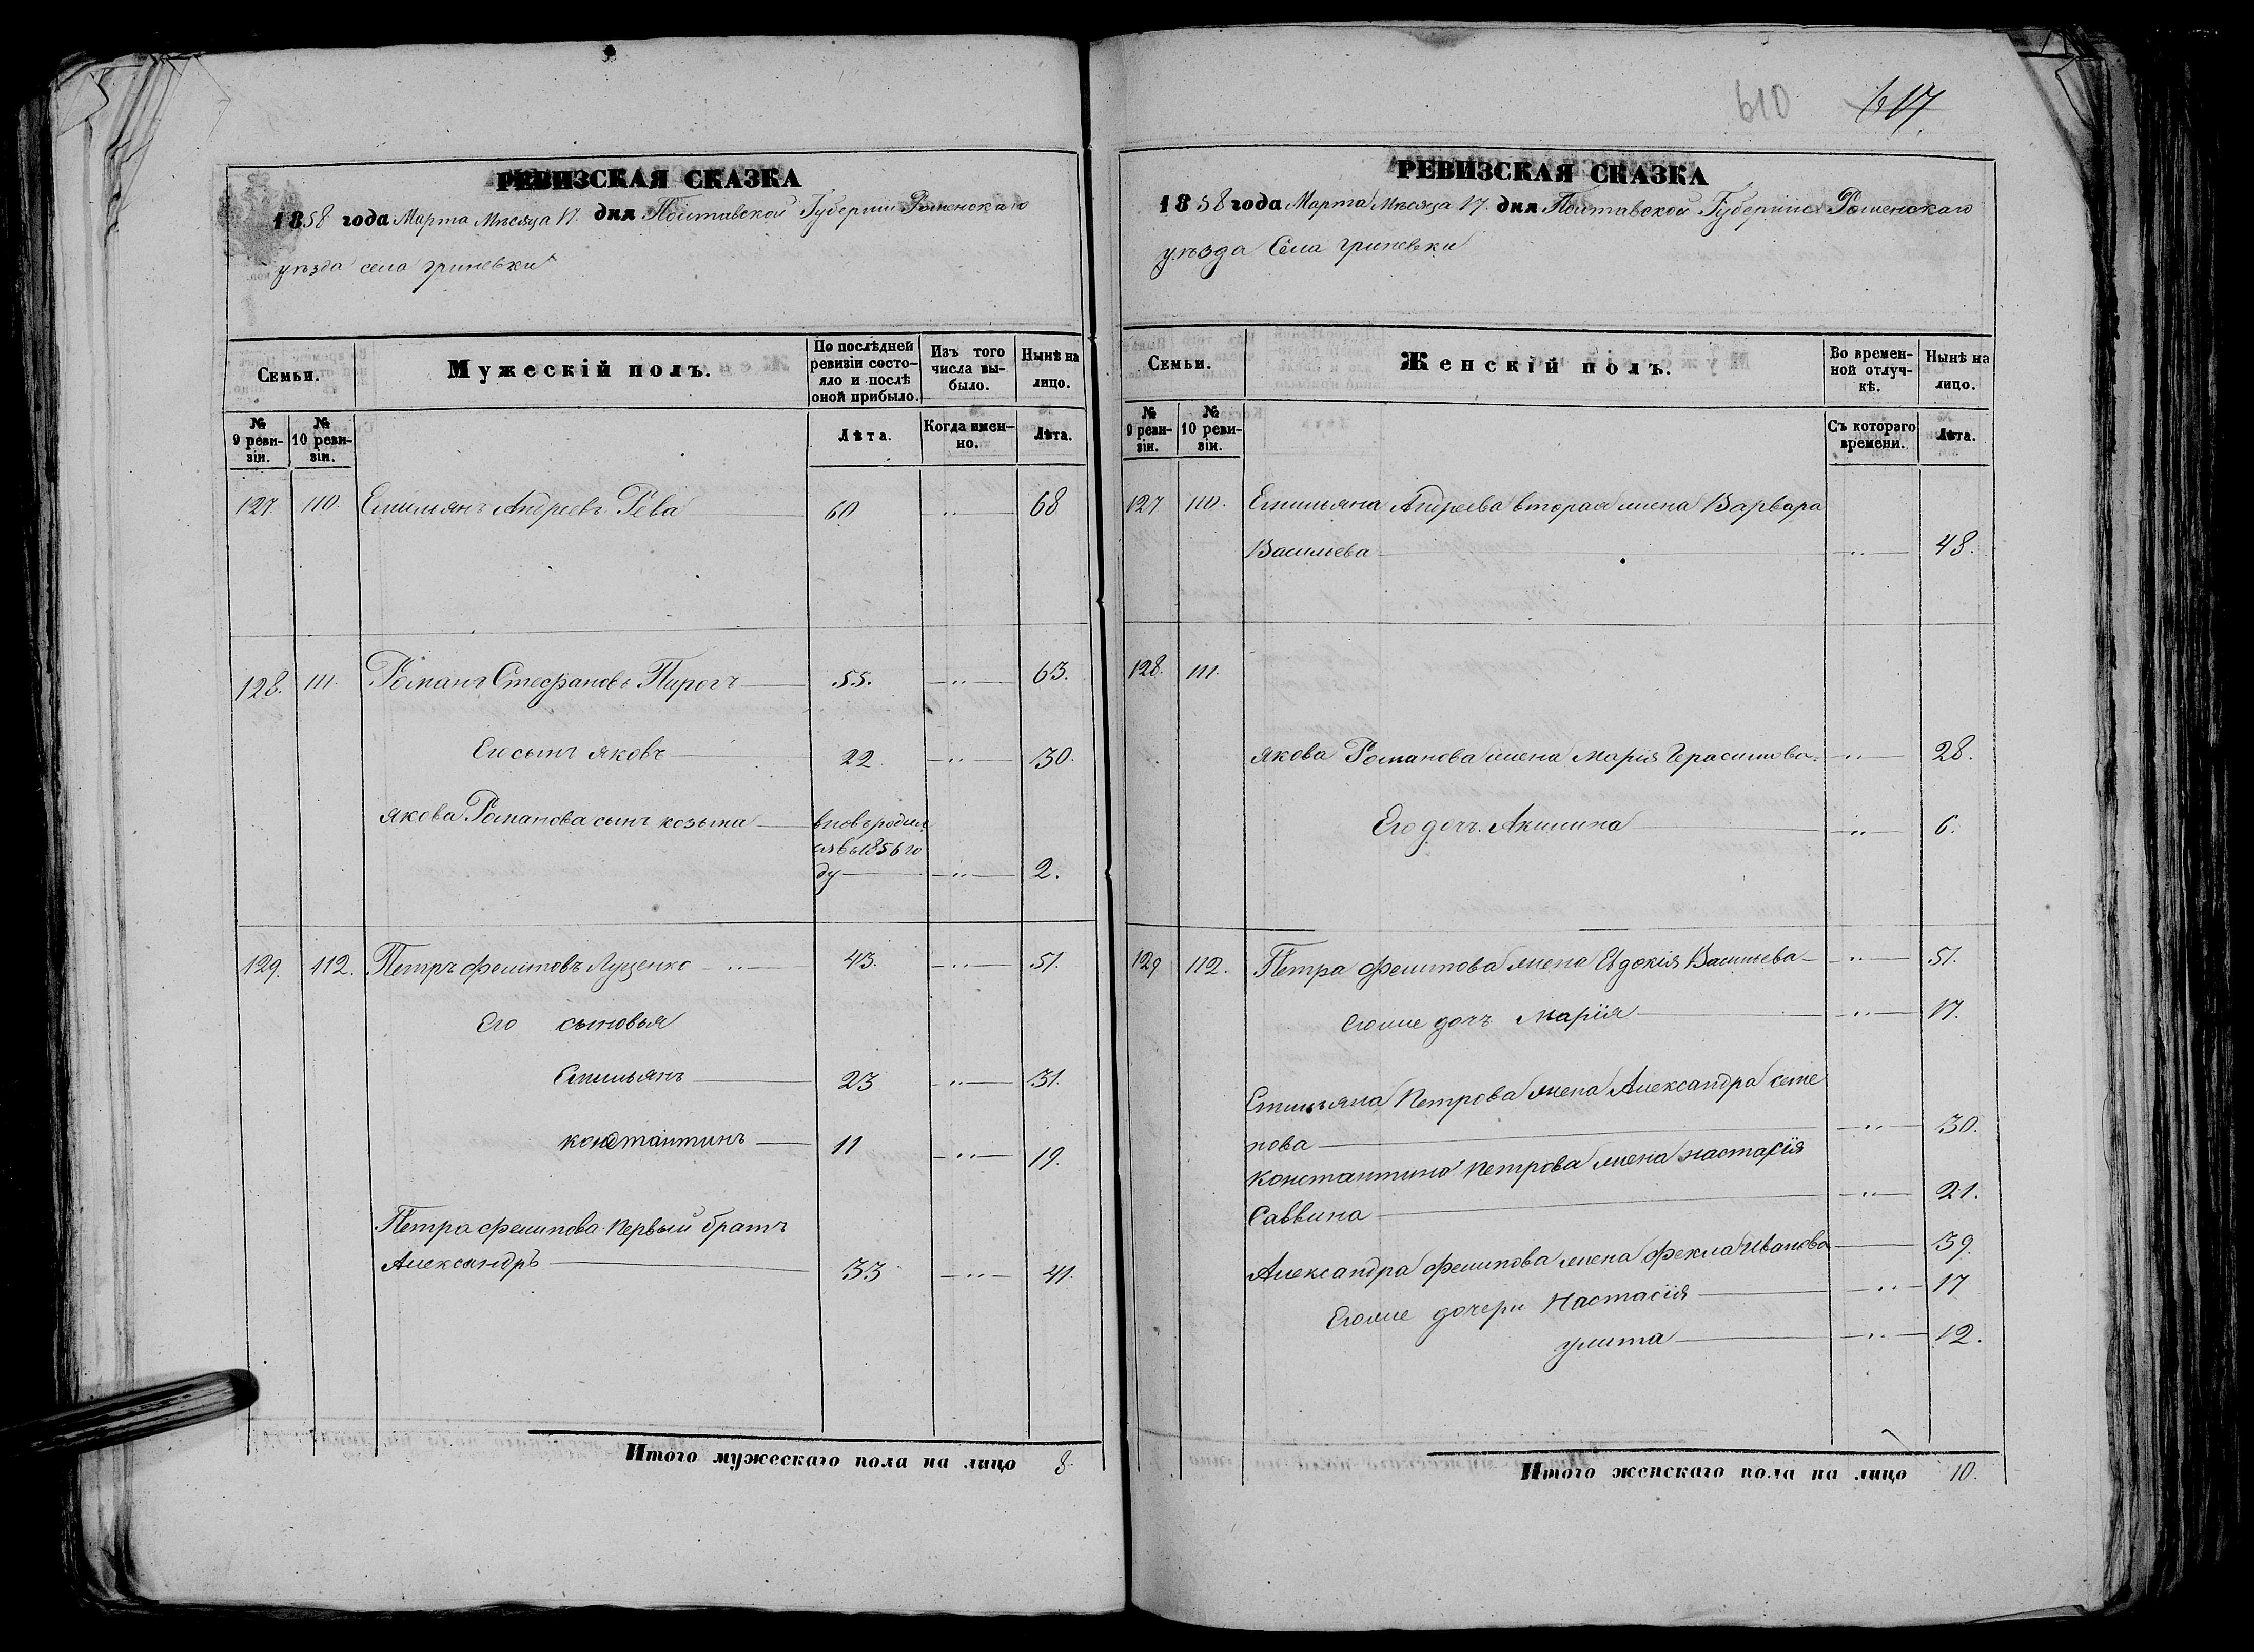 РЕВИЗСКАЯ СКАЗКА
1858 года Марта Мѣсяца 17. дня Полтавской Губерніи Роменскаго
уѣзда села Гриневки
Семьи.
Мужескій полъ.
По послѣдней ревизіи состояло и послѣ оной прибыло.
Изъ того числа выбыло.
Нынѣ на лицо.
№ 9 ревизіи.
№ 10 ревизіи.
Лѣта.
Когда именно.
Лѣта.
127. 110. Емильянъ Андреевъ Рева 60 68
128. 111. Романъ Стефановъ Пирогъ 55. 63.
Его сынъ яковъ 22 30.
якова Романова сынъ козьма вновь родил
ся въ 1856 го
ду 2.
129. 112. Петръ филиповъ Луценко 43. 51.
Его сыновья
Емильянъ 23 31.
константинъ 11 19.
Петра филипова первый братъ
Александръ 33 41.
Итого мужескаго пола на лицо 8.
610 617
РЕВИЗСКАЯ СКАЗКА
1858 года Марта Мѣсяца 17. дня Полтавской Губерніи Роменскаго
уѣзда Села гриневки
Семьи.
Женскій полъ.
Во временной отлучкѣ.
Нынѣ на лицо.
№ 9 ревизіи.
№ 10 ревизіи.
Съ котораго времени.
Лѣта.
127 110. Емильяна Андреева вторая жена Варвара
Васильева 48.
128. 111.
якова Романова жена Марія Герасимова 28.
Его дочь Акилина 6.
129 112. Петра филипова жена Евдокія Васильева 51.
Егоже дочь Марія 17.
Емильяна Петрова жена Александра семе
нова 30.
Константина Петрова жена настасія
Саввина 21.
Александра филипова жена фекла Иванова 39.
Егоже дочери Настасія 17
улита 12.
Итого женскаго пола на лицо 10.